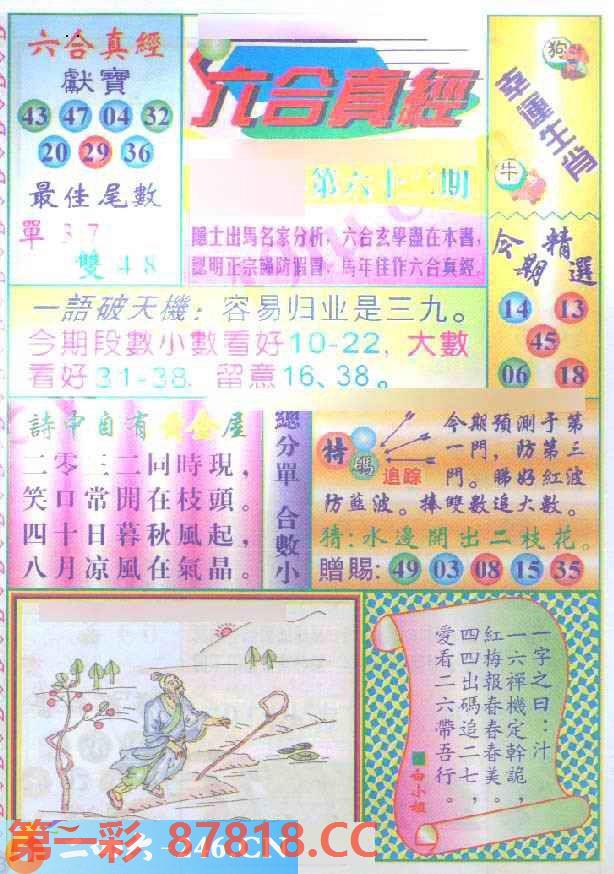 六合真經
獻寶
43 47 04 32
20 29 36
最佳尾數
單 37
雙 48
六合真經
第六十二期
隱士出馬名家分析，六合玄學盡在本書，
認明正宗謹防假冒，馬年佳作六合真經。
狗
幸運生肖
牛
今期精選
14 13
45
06 18
一語破天機：容易归业是三九。
今期段數小數看好10-22，大數
看好31-38，留意16、38。
詩中自有黃金屋
二零三二同時現，
笑口常開在枝頭。
四十日暮秋風起，
八月凉風在氣晶。
總分單 合數小
特碼追踪
今期預測于第
一門，防第三
門。睇好紅波
防藍波。捧雙數追大數。
猜：水邊開出二枝花。
贈賜：49 03 08 15 35
一字之曰：汁
一六禪機定幹詭，
紅梅報春春春美。
四四出碼追二七，
愛看二六帶吾行。
白小姐
第一彩 87818.CC
246.CN